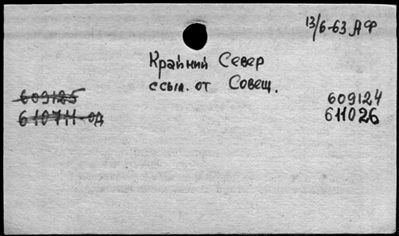 13/6-63 АФ
Крайний Север
ссыл. от Совещ.
609125 609124
610711-ОД 611026